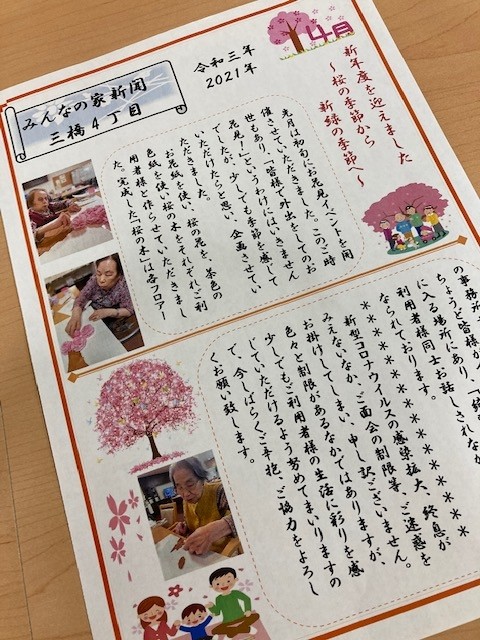 みんなの家新聞
三橋4丁目
令和三年
2021年
4月
新年度を迎えました
～桜の季節から
新緑の季節へ～
先月は初旬にお花見イベントを開
催させていただきました。このご時
世もあり、「皆様で外出をしてのお
花見！」というわけにはいきません
でしたが、少しでも季節を感じて
いただけたらと思い、企画させてい
ただきました。
お花紙を使い、桜の花を、茶色の
色紙を使い桜の木をそれぞれご利
用者様と作らせていただきまし
た。完成した「桜の木」は各フロアー
の事務所
ちょうど皆様が
に入る場所にあり、
利用者様同士お話しされなが
なられております。
＊＊＊＊＊＊＊＊＊＊＊＊＊＊＊
新型コロナウイルスの感染拡大、終息が
みえないなか、ご面会の制限等、ご迷惑を
お掛けしてしまい、申し訳ございません。
色々と制限があるなかではありますが、
少しでもご利用者様の生活に彩りを感
じていただけるよう努めてまいりますの
で、今しばらくご辛抱、ご協力をよろし
くお願い致します。